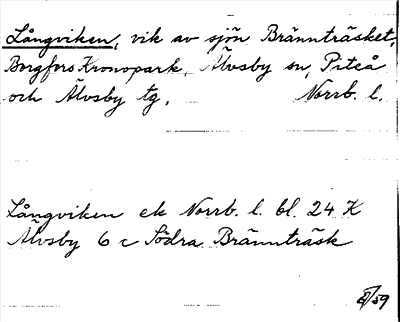 Långviken, vik av sjön Brännträsket,
Borgfors Kronopark, Älvsby sn, Piteå
och Älvsby tg, Norrb. l.
Långviken ek Norrb. l. bl. 24 K
Älvsby 6 c Södra Brännträsk
/59